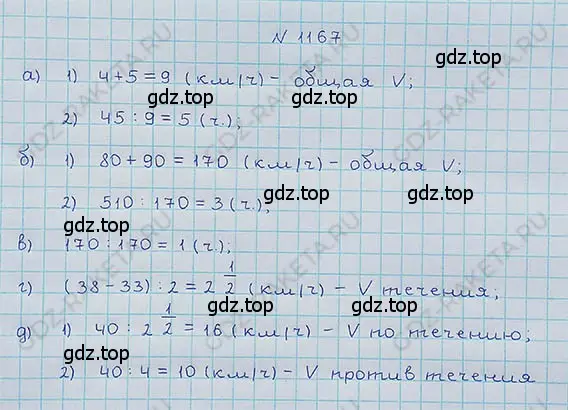 N 1167
а) 1) 4+5=9 (км/ч) – общая V;
gdz.top gdz.top
2) 45 : 9 = 5 (ч.);
б) 1) 80 + 90 = 170 (км/ч) – общая V;
gdz.top gdz.top
2) 510 : 170 = 3 (ч.);
gdz.top gdz.top
в) 170 : 170 = 1 (ч.);
г) (38 – 33) : 2 = 2 1/2 (км/ч) – V течения;
gdz.top gdz.top
д) 1) 40 : 2 1/2 = 16 (км/ч) – V по течению;
gdz.top gdz.top
2) 40 : 4 = 10 (км/ч) – V против течения
GDZ-RAKETA.RU